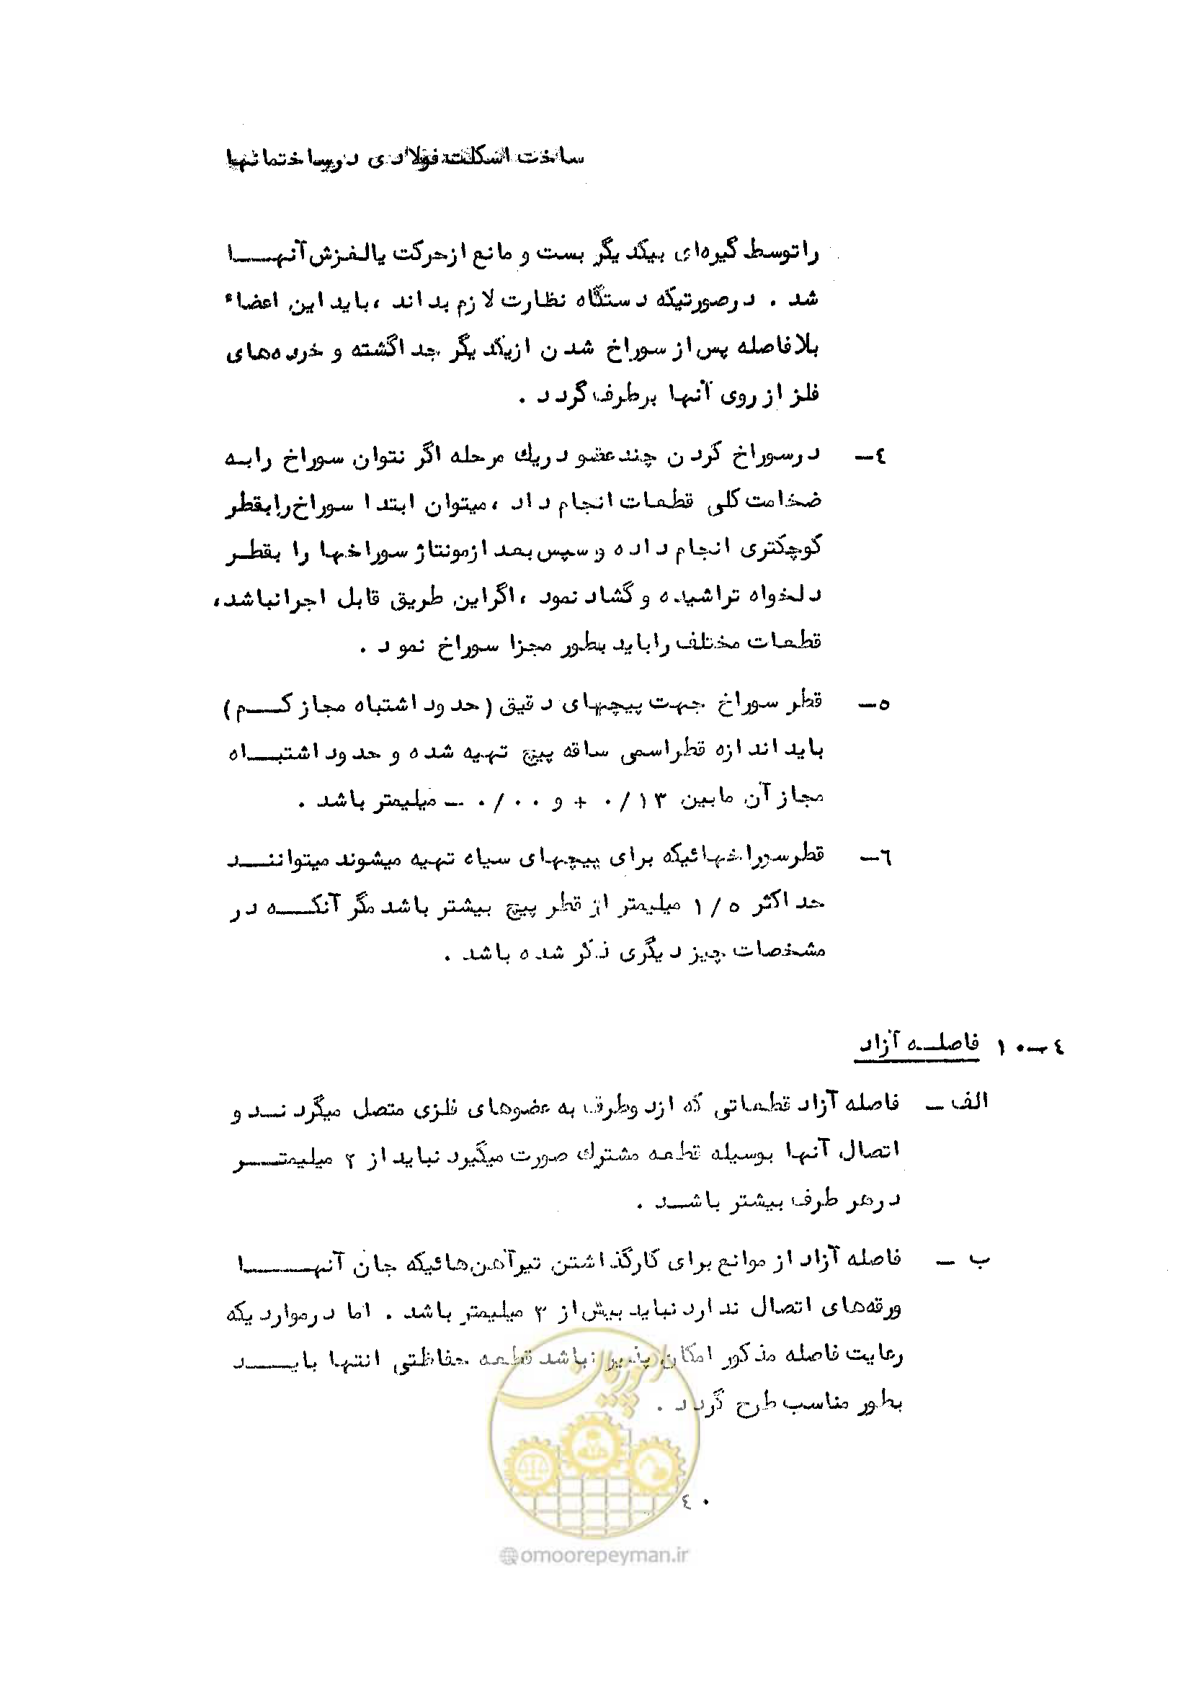 ساخت اسکلت فولادی در ساختمانها
را توسط گیره‌ای بیکدیگر بست و مانع از حرکت یا لغزش آنهــا
شد . در صورتیکه دستگاه نظارت لازم بداند ، باید این اعضاء
بلافاصله پس از سوراخ شدن از یکدیگر جدا گشته و خرده‌های
فلز از روی آنها برطرف گردد .
٤ـ در سوراخ کردن چند عضو در یك مرحله اگر نتوان سوراخ را به
ضخامت کلی قطعات انجام داد ، میتوان ابتدا سوراخ را بقطر
کوچکتری انجام داده و سپس بعد از مونتاژ سوراخها را بقطــر
دلخواه تراشیده و گشاد نمود ، اگر این طریق قابل اجرا نباشد ،
قطعات مختلف را باید بطور مجزا سوراخ نمود .
٥ـ قطر سوراخ جهت پیچهای دقیق ( حدود اشتباه مجاز کــم )
باید اندازه قطر اسمی ساقه پیچ تهیه شده و حدود اشتبــاه
مجاز آن مابین ۰/۱۳ + و ۰/۰۰ ـ میلیمتر باشد .
٦ـ قطر سوراخهائیکه برای پیچهای سیاه تهیه میشوند میتواننــد
حداکثر ۱/٥ میلیمتر از قطر پیچ بیشتر باشد مگر آنکــه در
مشخصات چیز دیگری ذکر شده باشد .
٤ـ۱۰ فاصلــه آزاد
الف ـ فاصله آزاد قطعاتی که از دو طرف به عضوهای فلزی متصل میگردنــد و
اتصال آنها بوسیله قطعه مشترك صورت میگیرد نباید از ۲ میلیمتــر
در هر طرف بیشتر باشــد .
ب ـ فاصله آزاد از موانع برای کارگذاشتن تیرآهن‌هائیکه جان آنهــا
ورقه‌های اتصال ندارد نباید بیش از ۳ میلیمتر باشد . اما در مواردیکه
رعایت فاصله مذکور امکان پذیر نباشد قطعه حفاظتی انتها بایــد
بطور مناسب طرح گردد .
امور پیمان
٤۰
@omoorepeyman.ir